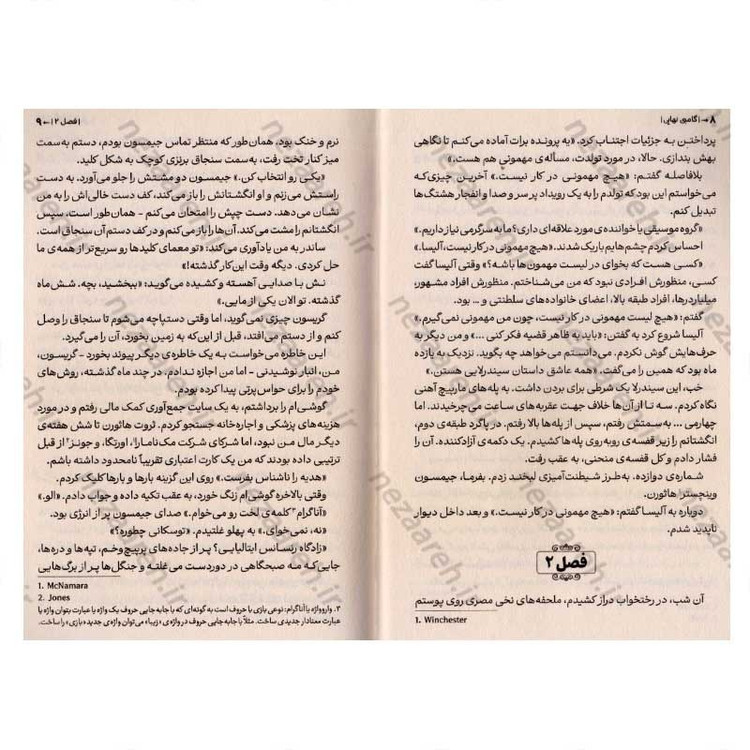 ۸ → | گامبی نهایی |
پرداختن به جزئیات اجتناب کرد. «یه پرونده برات آماده می‌کنم تا نگاهی
بهش بندازی. حالا، در مورد تولدت، مسأله‌ی مهمونی هم هست.»
بلافاصله گفتم: «هیچ مهمونی در کار نیست.» آخرین چیزی که
می‌خواستم این بود که تولدم را به یک رویداد پر سر و صدا و انفجار هشتگ‌ها
تبدیل کنم.
«گروه موسیقی یا خواننده‌ی مورد علاقه‌ای داری؟ ما به سرگرمی نیاز داریم.»
احساس کردم چشم‌هایم باریک شدند. «هیچ مهمونی در کار نیست، آلیسا.»
«کسی هست که بخوای در لیست مهمون‌ها باشه؟» وقتی آلیسا گفت
کسی، منظورش افرادی نبود که من می‌شناختم. منظورش افراد مشهور،
میلیاردرها، افراد طبقه بالا، اعضای خانواده‌های سلطنتی و ... بود.
گفتم: «هیچ لیست مهمونی در کار نیست، چون من مهمونی نمی‌گیرم.»
آلیسا شروع کرد به گفتن: «باید به ظاهر قضیه فکر کنی ...» و من دیگر به
حرف‌هایش گوش نکردم. می‌دانستم می‌خواهد چه بگوید. نزدیک به یازده
ماه بود که همین را می‌گفت. «همه عاشق داستان سیندرلایی هستن.»
خب، این سیندرلا یک شرطی برای بردن داشت. به پله‌های مارپیچ آهنی
نگاه کردم. سه تا از آن‌ها خلاف جهت عقربه‌های ساعت می‌چرخیدند. اما
چهارمی ... به سمتش رفتم، سپس از پله‌ها بالا رفتم. در پاگرد طبقه‌ی دوم،
انگشتانم را زیر قفسه‌ی روبه‌روی پله‌ها کشیدم. یک دکمه‌ی آزادکننده. آن را
فشار دادم و کل قفسه‌ی منحنی، به عقب رفت.
شماره‌ی دوازده. به‌طرز شیطنت‌آمیزی لبخند زدم. بفرما، جیمسون
وینچستر هاثورن.
دوباره به آلیسا گفتم: «هیچ مهمونی در کار نیست.» و بعد داخل دیوار
ناپدید شدم.
فصل ۲
آن شب، در رختخواب دراز کشیدم، ملحفه‌های نخی مصری روی پوستم
1. Winchester
| فصل ۲ | ← ۹
نرم و خنک بود. همان‌طور که منتظر تماس جیمسون بودم، دستم به‌سمت
میز کنار تخت رفت، به‌سمت سنجاق برنزی کوچک به شکل کلید.
«یکی رو انتخاب کن.» جیمسون دو مشتش را جلو می‌آورد. به دست
راستش می‌زنم و او انگشتانش را باز می‌کند، کف دست خالی‌اش را به من
نشان می‌دهد. دست چپش را امتحان می‌کنم - همان‌طور است. سپس
انگشتانم را مشت می‌کند. آن‌ها را باز می‌کنم و در کف دستم آن سنجاق است.
ساندر به من یادآوری می‌کند: «تو معمای کلیدها رو سریع‌تر از همه‌ی ما
حل کردی. دیگه وقت این‌کار گذشته!»
نش با صدایی آهسته و کشیده می‌گوید: «ببخشید، بچه. شش‌ماه
گذشته. تو الان یکی از مایی.»
گریسون چیزی نمی‌گوید، اما وقتی دستپاچه می‌شوم تا سنجاق را وصل
کنم و از دستم می‌افتد، قبل از این‌که به زمین بخورد، آن را می‌گیرد.
این خاطره می‌خواست به یک خاطره‌ی دیگر پیوند بخورد - گریسون،
من، انبار نوشیدنی - اما من اجازه ندادم. در چند ماه گذشته، روش‌های
خودم را برای حواس‌پرتی پیدا کرده بودم.
گوشی‌ام را برداشتم، به یک سایت جمع‌آوری کمک مالی رفتم و در مورد
هزینه‌های پزشکی و اجاره‌خانه جستجو کردم. ثروت هاثورن تا شش هفته‌ی
دیگر مال من نبود، اما شرکای شرکت مک‌نامارا۱، اورتگا، و جونز۲ از قبل
ترتیبی داده بودند که من یک کارت اعتباری تقریباً نامحدود داشته باشم.
«هدیه را ناشناس بفرست.» روی این گزینه بارها و بارها کلیک کردم.
وقتی بالاخره گوشی‌ام زنگ خورد، به عقب تکیه دادم و جواب دادم. «الو.»
«آناگرام۳ کلمه‌ی لخت رو می‌خوام.» صدای جیمسون پر از انرژی بود.
«نه، نمی‌خوای.» به پهلو غلتیدم. «توسکانی چطوره؟»
«زادگاه رنسانس ایتالیایی؟ پر از جاده‌های پرپیچ‌وخم، تپه‌ها و دره‌ها،
جایی‌که مه صبحگاهی در دوردست می‌غلته و جنگل‌ها پر از برگ‌هایی
1. McNamara
2. Jones
۳. وارو واژه یا آناگرام: نوعی بازی با حروف است به گونه‌ای که با جابه جایی حروف یک واژه یا عبارت بتوان واژه یا
عبارت معنادار جدیدی ساخت. مثلاً با جابه جایی حروف در واژه‌ی «زیبا» می‌توان واژه‌ی جدید «بازی» را ساخت.
nezaareh.ir